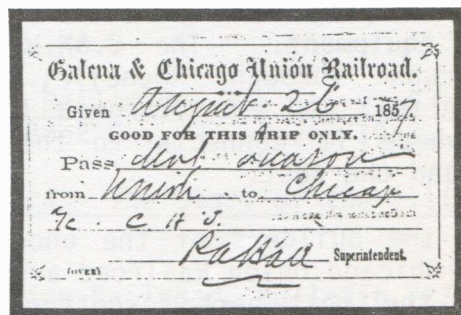 Galena & Chicago Union Railroad.
Given August 26 1857
GOOD FOR THIS TRIP ONLY.
Pass
from to Chicago
C. H. J.
Superintendent.
(OVER)